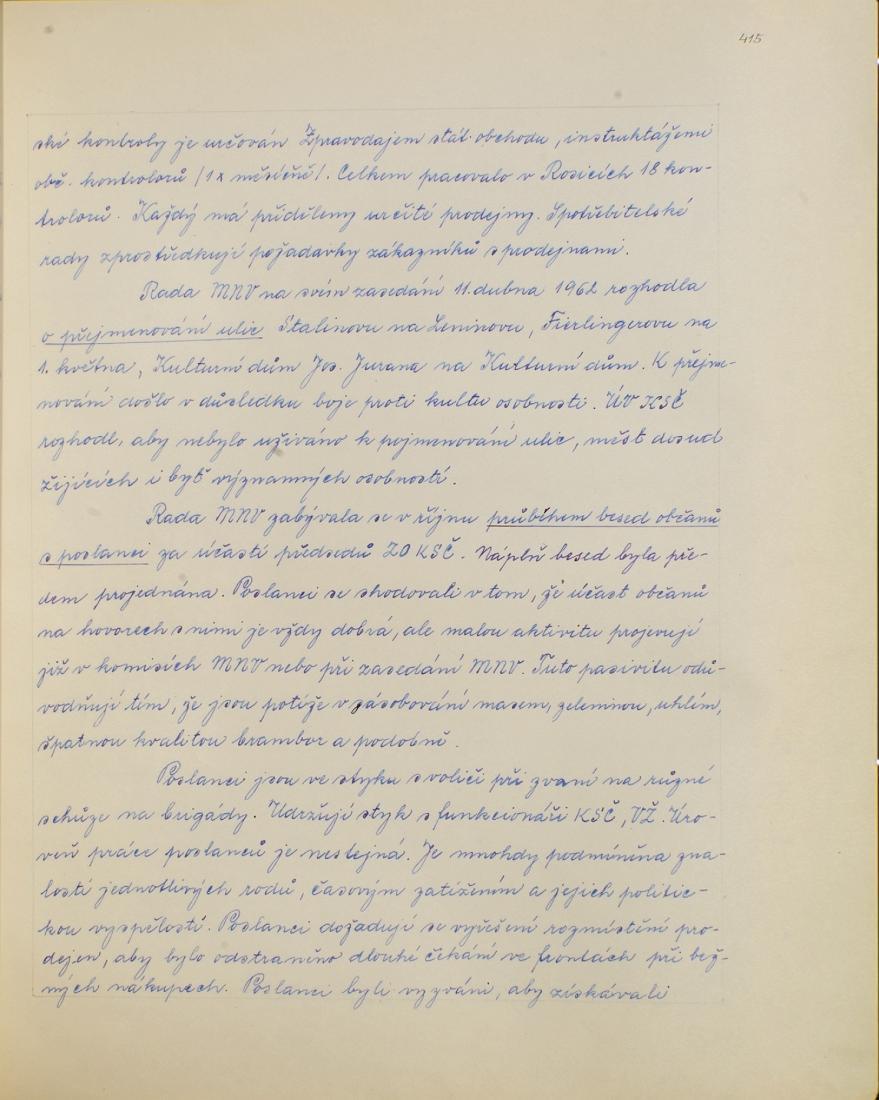 415
ské kontroly je určován Zpravodajem stát. obchodu, instruktážemi
obč. kontrolorů /1x měsíčně/. Celkem pracovalo v Rosicích 18 kon-
trolorů. Každý má přiděleny určité prodejny. Spotřebitelské
rady zprostředkují požadavky zákazníků s prodejnami.
Rada MNV na svém zasedání 11. dubna 1962 rozhodla
o přejmenování ulic Stalinovu na Leninovu, Fierlingerovu na
1. května, Kulturní dům Jos. Jurana na Kulturní dům. K přejme-
nování došlo v důsledku boje proti kultu osobnosti. ÚV KSČ
rozhodl, aby nebylo užíváno k pojmenování ulic, měst dosud
žijících i byť významných osobností.
Rada MNV zabývala se v říjnu průběhem besed občanů
s poslanci za účasti předsedů ZO KSČ. Náplň besed byla pře-
dem projednána. Poslanci se shodovali v tom, že účast občanů
na hovorech s nimi je vždy dobrá, ale malou aktivitu projevují
již v komisích MNV nebo při zasedání MNV. Tuto pasivitu odů-
vodňují tím, že jsou potíže v zásobování masem, zeleninou, uhlím,
špatnou kvalitou brambor a podobně.
Poslanci jsou ve styku s voliči při zvaní na různé
schůze na brigády. Udržují styk s funkcionáři KSČ, VŽ. Úro-
veň práce poslanců je nestejná. Je mnohdy podmíněna zna-
lostí jednotlivých rodů, časovým zatížením a jejich politic-
kou vyspělostí. Poslanci dožadují se vyřešení rozmístění pro-
dejen, aby bylo odstraněno dlouhé čekání ve frontách při běž-
ných nákupech. Poslanci byli vyzváni, aby získávali